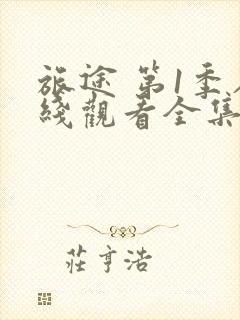 旅途 第1季
綫觀看全集
莊亨浩